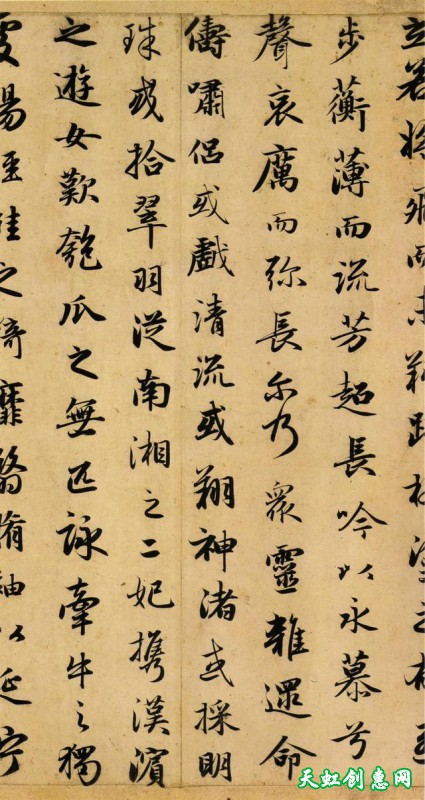 立若將飛而未翔踐椒塗之郁烈
步蘅薄而流芳超長吟以永慕兮
聲哀厲而弥長尔乃眾靈雜遝命
儔嘯侣或戲清流或翔神渚或採明
珠或拾翠羽從南湘之二妃携漢濱
之遊女歎匏瓜之無匹詠牽牛之獨
處揚輕袿之綺靡翳脩袖以延佇
天虹创惠网